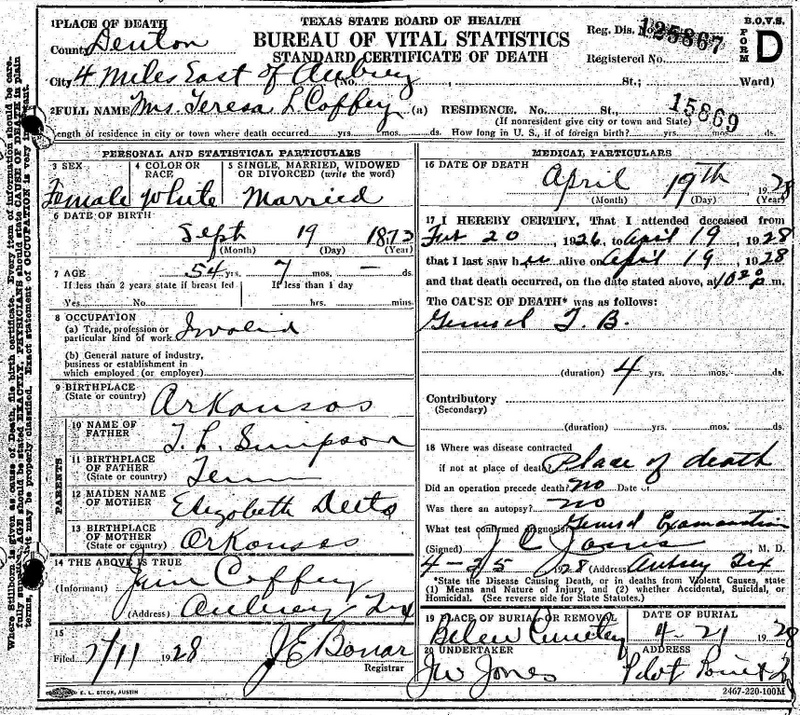 TEXAS STATE BOARD OF HEALTH
BUREAU OF VITAL STATISTICS
STANDARD CERTIFICATE OF DEATH
B.O.V.S.
FORM D
1 PLACE OF DEATH
County Denton
Reg. Dis. No. 125867
City 4 miles East of Aubrey (No. St.; Ward)
Registered No.
2 FULL NAME Mrs. Teresa L Coffey (a) RESIDENCE. No. St.,
15869
(If nonresident give city or town and State)
Length of residence in city or town where death occurred yrs. mos. ds. How long in U. S., if of foreign birth? yrs. mos. ds.
PERSONAL AND STATISTICAL PARTICULARS
3 SEX 4 COLOR OR RACE 5 SINGLE, MARRIED, WIDOWED OR DIVORCED (write the word)
Female white Married
6 DATE OF BIRTH
Sept 19 1873
(Month) (Day) (Year)
7 AGE 54 yrs. 7 mos. — ds.
If less than 2 years state if breast fed If less than 1 day
Yes No hrs. mins.
8 OCCUPATION
(a) Trade, profession or particular kind of work Invalid
(b) General nature of industry, business or establishment in which employed (or employer)
9 BIRTHPLACE
(State or country) Arkansas
PARENTS
10 NAME OF FATHER T. L. Simpson
11 BIRTHPLACE OF FATHER
(State or country) Tenn
12 MAIDEN NAME OF MOTHER Elizabeth Deets
13 BIRTHPLACE OF MOTHER
(State or country) Arkansas
14 THE ABOVE IS TRUE
(Informant) Jim Coffey
(Address) Aubrey Tex
15
Filed 7/11 1928 J E Bonar
Registrar
E. L. STECK, AUSTIN
MEDICAL PARTICULARS
16 DATE OF DEATH
April 19th 1928
(Month) (Day) (Year)
17 I HEREBY CERTIFY, That I attended deceased from
Feb 20, 1926, to April 19, 1928
that I last saw her alive on April 19, 1928
and that death occurred, on the date stated above, at 10 20 p m.
The CAUSE OF DEATH* was as follows:
General T. B.
(duration) 4 yrs. mos. ds.
Contributory
(Secondary)
(duration) yrs. mos. ds.
18 Where was disease contracted
if not at place of death Place of death
Did an operation precede death? no Date of
Was there an autopsy? no
What test confirmed diagnosis? General Examination
(Signed) J C Jones M. D.
4-25 1928 (Address) Aubrey Tex
*State the Disease Causing Death, or in deaths from Violent Causes, state
(1) Means and Nature of Injury, and (2) whether Accidental, Suicidal, or
Homicidal. (See reverse side for State Statutes.)
19 PLACE OF BURIAL OR REMOVAL DATE OF BURIAL
Belew Cemetey 4-21 1928
20 UNDERTAKER ADDRESS
JW Jones Pilot Point Tx
2467-220-100M